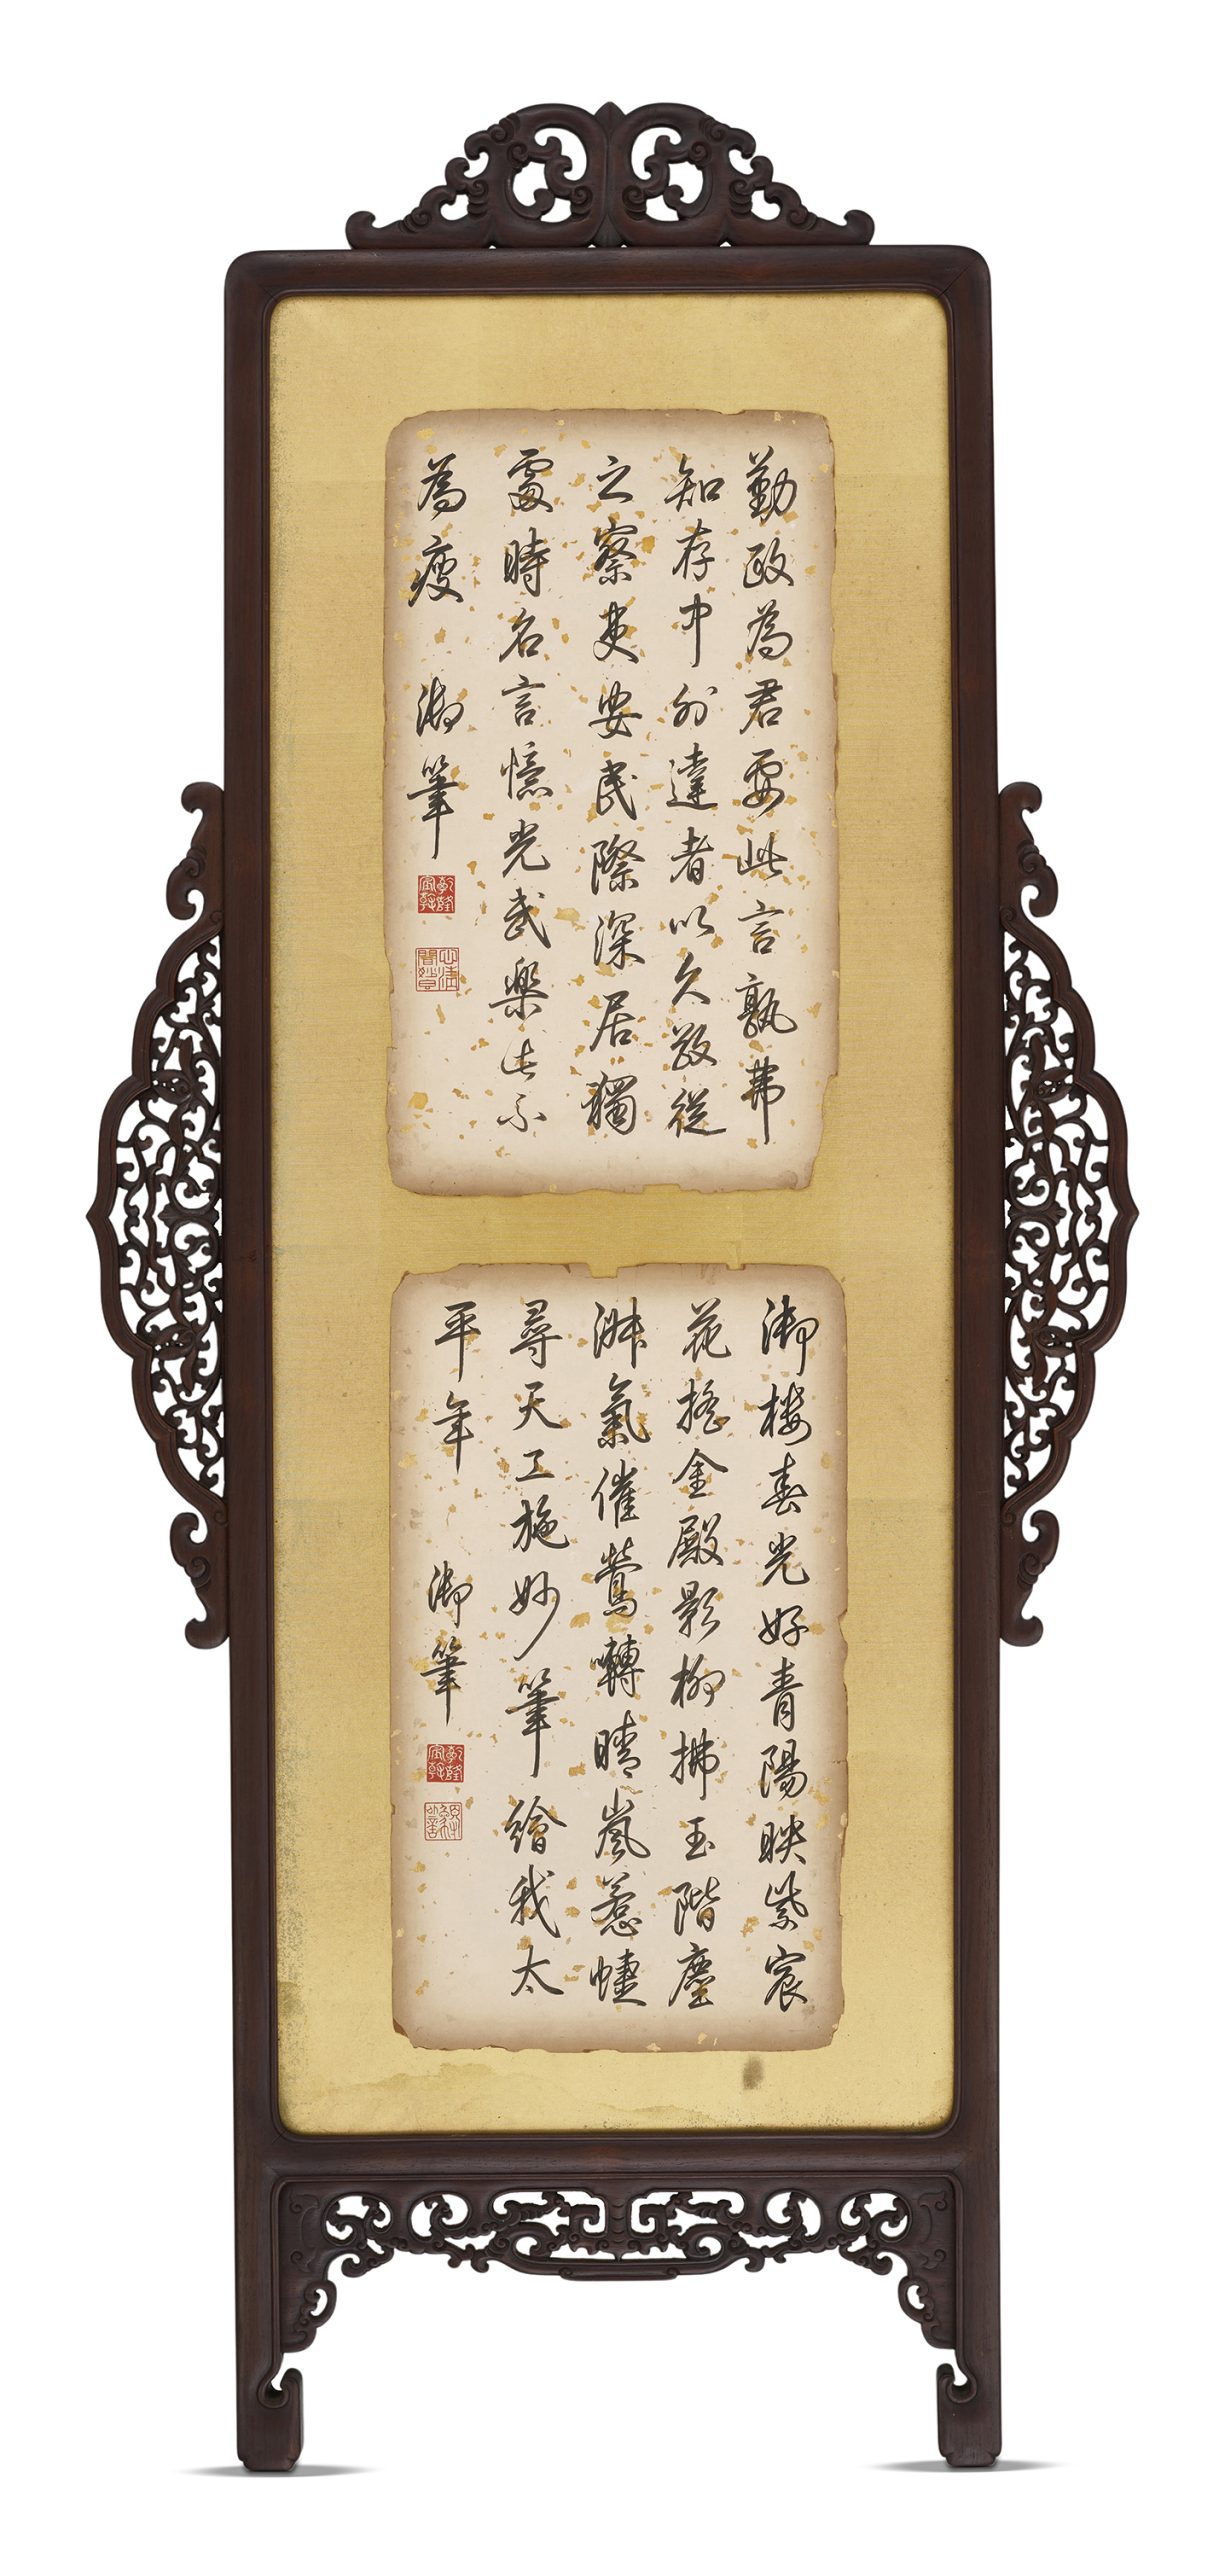 勤政為君要此言孰弗
知存中外達者以久敬從
之察吏安民際深居獨
處時名言憶光武樂此不
為疲 御筆
乾隆宸翰
御楼春光好青陽映紫宸
花搖金殿影柳拂玉階塵
淑氣催鶯囀晴嵐惹蜨
尋天工施妙筆繪我太
平年 御筆
乾隆宸翰